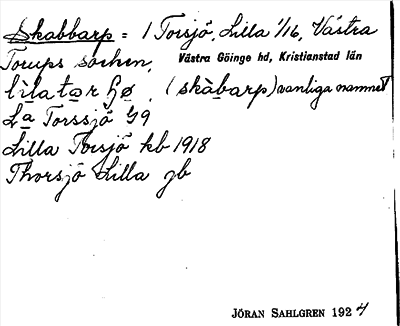 Skabbarp = / Torsjö, Lilla 1/16, Västra
Torups socken, Västra Göinge hd, Kristianstad län
lìlatɑrhø, (skàbarp) vanliga namnet
La Torssjö 49
Lilla Torsjö kb 1918
Thorsjö Lilla jb
JÖRAN SAHLGREN 1924